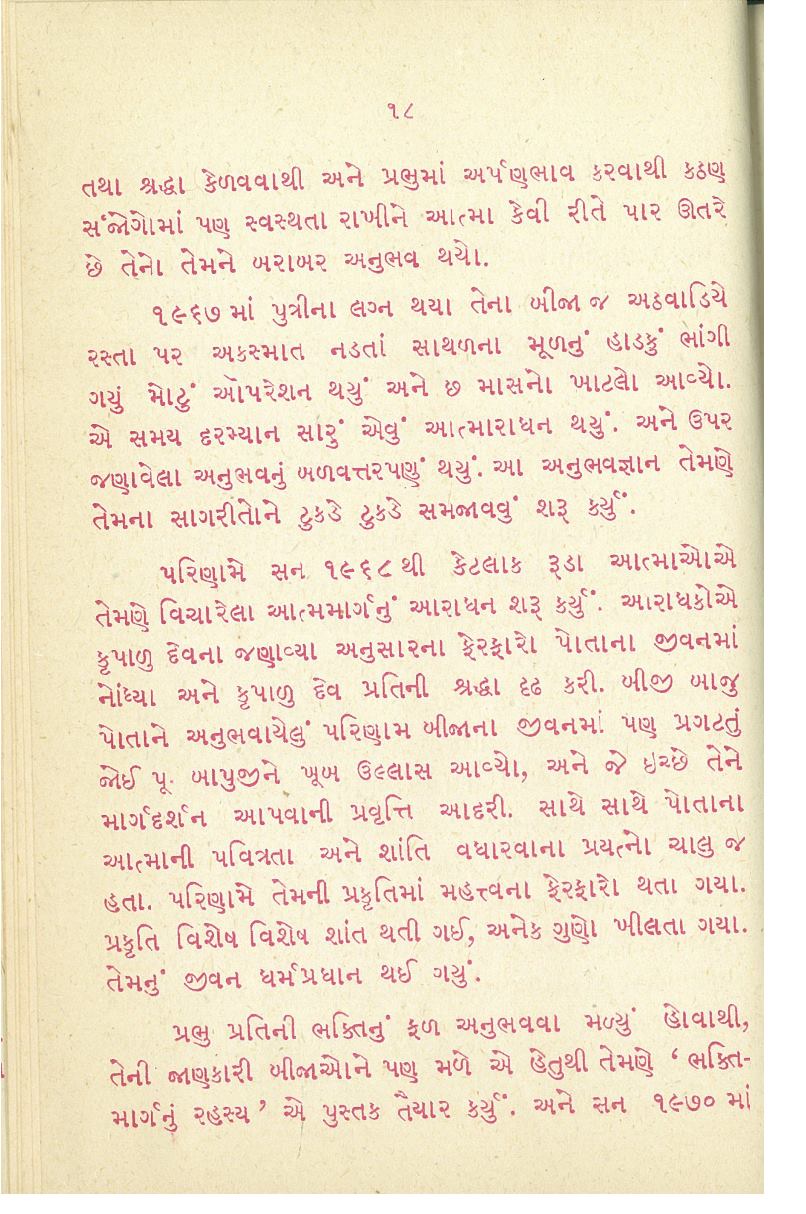 ૧૮
તથા શ્રદ્ધા કેળવવાથી અને પ્રભુમાં અર્પણભાવ કરવાથી કઠણ
સંજોગોમાં પણ સ્વસ્થતા રાખીને આત્મા કેવી રીતે પાર ઊતરે
છે તેનો તેમને બરાબર અનુભવ થયો.
૧૯૬૭ માં પુત્રીના લગ્ન થયા તેના બીજા જ અઠવાડિયે
રસ્તા પર અકસ્માત નડતાં સાથળના મૂળનું હાડકું ભાંગી
ગયું મોટું ઑપરેશન થયું અને છ માસનો ખાટલો આવ્યો.
એ સમય દરમ્યાન સારું એવું આત્મારાધન થયું. અને ઉપર
જણાવેલા અનુભવનું બળવત્તરપણું થયું. આ અનુભવજ્ઞાન તેમણે
તેમના સાગરીતોને ટુકડે ટુકડે સમજાવવું શરૂ કર્યું.
પરિણામે સન ૧૯૬૮ થી કેટલાક રૂડા આત્માઓએ
તેમણે વિચારેલા આત્મમાર્ગનું આરાધન શરૂ કર્યું. આરાધકોએ
કૃપાળુ દેવના જણાવ્યા અનુસારના ફેરફારો પોતાના જીવનમાં
નોંધ્યા અને કૃપાળુ દેવ પ્રતિની શ્રદ્ધા દૃઢ કરી. બીજી બાજુ
પોતાને અનુભવાયેલું પરિણામ બીજાના જીવનમાં પણ પ્રગટતું
જોઈ પૂ. બાપુજીને ખૂબ ઉલ્લાસ આવ્યો, અને જે ઇચ્છે તેને
માર્ગદર્શન આપવાની પ્રવૃત્તિ આદરી. સાથે સાથે પોતાના
આત્માની પવિત્રતા અને શાંતિ વધારવાના પ્રયત્નો ચાલુ જ
હતા. પરિણામે તેમની પ્રકૃતિમાં મહત્ત્વના ફેરફારો થતા ગયા.
પ્રકૃતિ વિશેષ વિશેષ શાંત થતી ગઈ, અનેક ગુણો ખીલતા ગયા.
તેમનું જીવન ધર્મપ્રધાન થઈ ગયું.
પ્રભુ પ્રતિની ભક્તિનું ફળ અનુભવવા મળ્યું હોવાથી,
તેની જાણકારી બીજાઓને પણ મળે એ હેતુથી તેમણે ‘ ભક્તિ-
માર્ગનું રહસ્ય ’ એ પુસ્તક તૈયાર કર્યું. અને સન ૧૯૭૦ માં